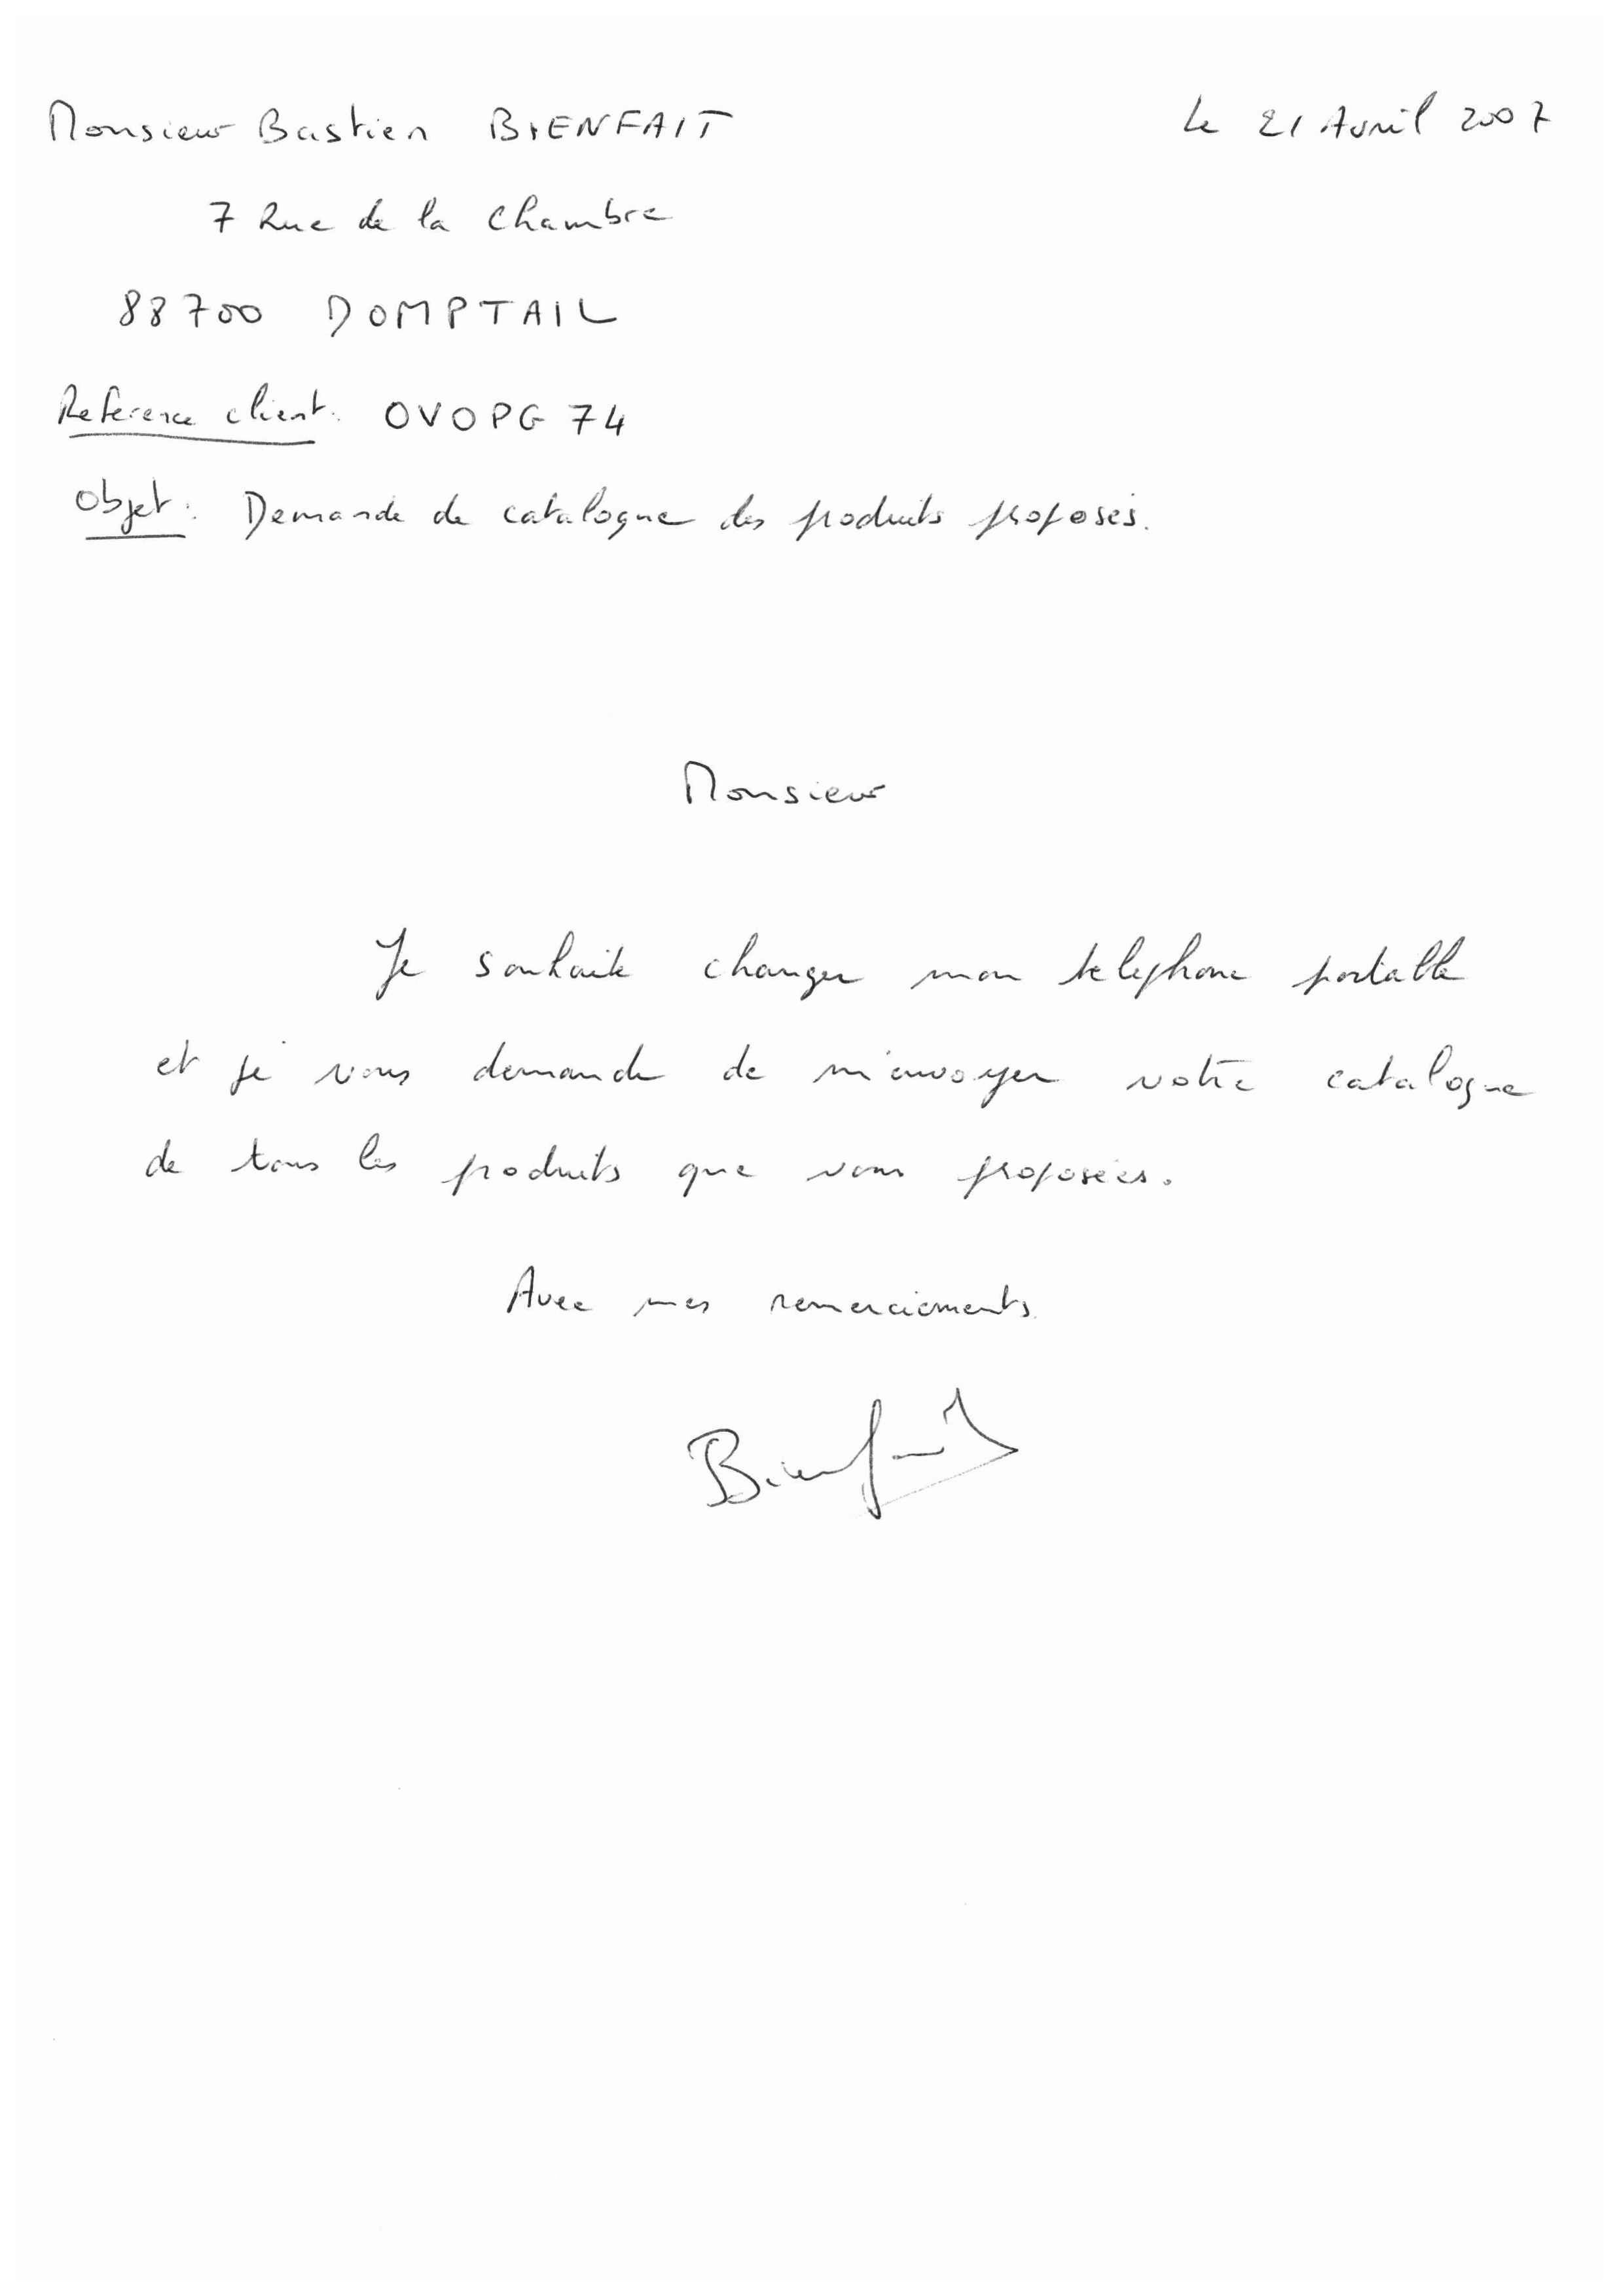 Monsieur Bastien BIENFAIT
Le 21 Avril 2007
7 Rue de la Chambre
88700 DOMPTAIL
Reference client: OVOPG 74
Objet: Demande de catalogue des produits proposés.
Monsieur
Je souhaite changer mon telephone portable
et je vous demande de m'envoyer votre catalogue
de tous les produits que vous proposées.
Avec mes remerciements.
Bienfait